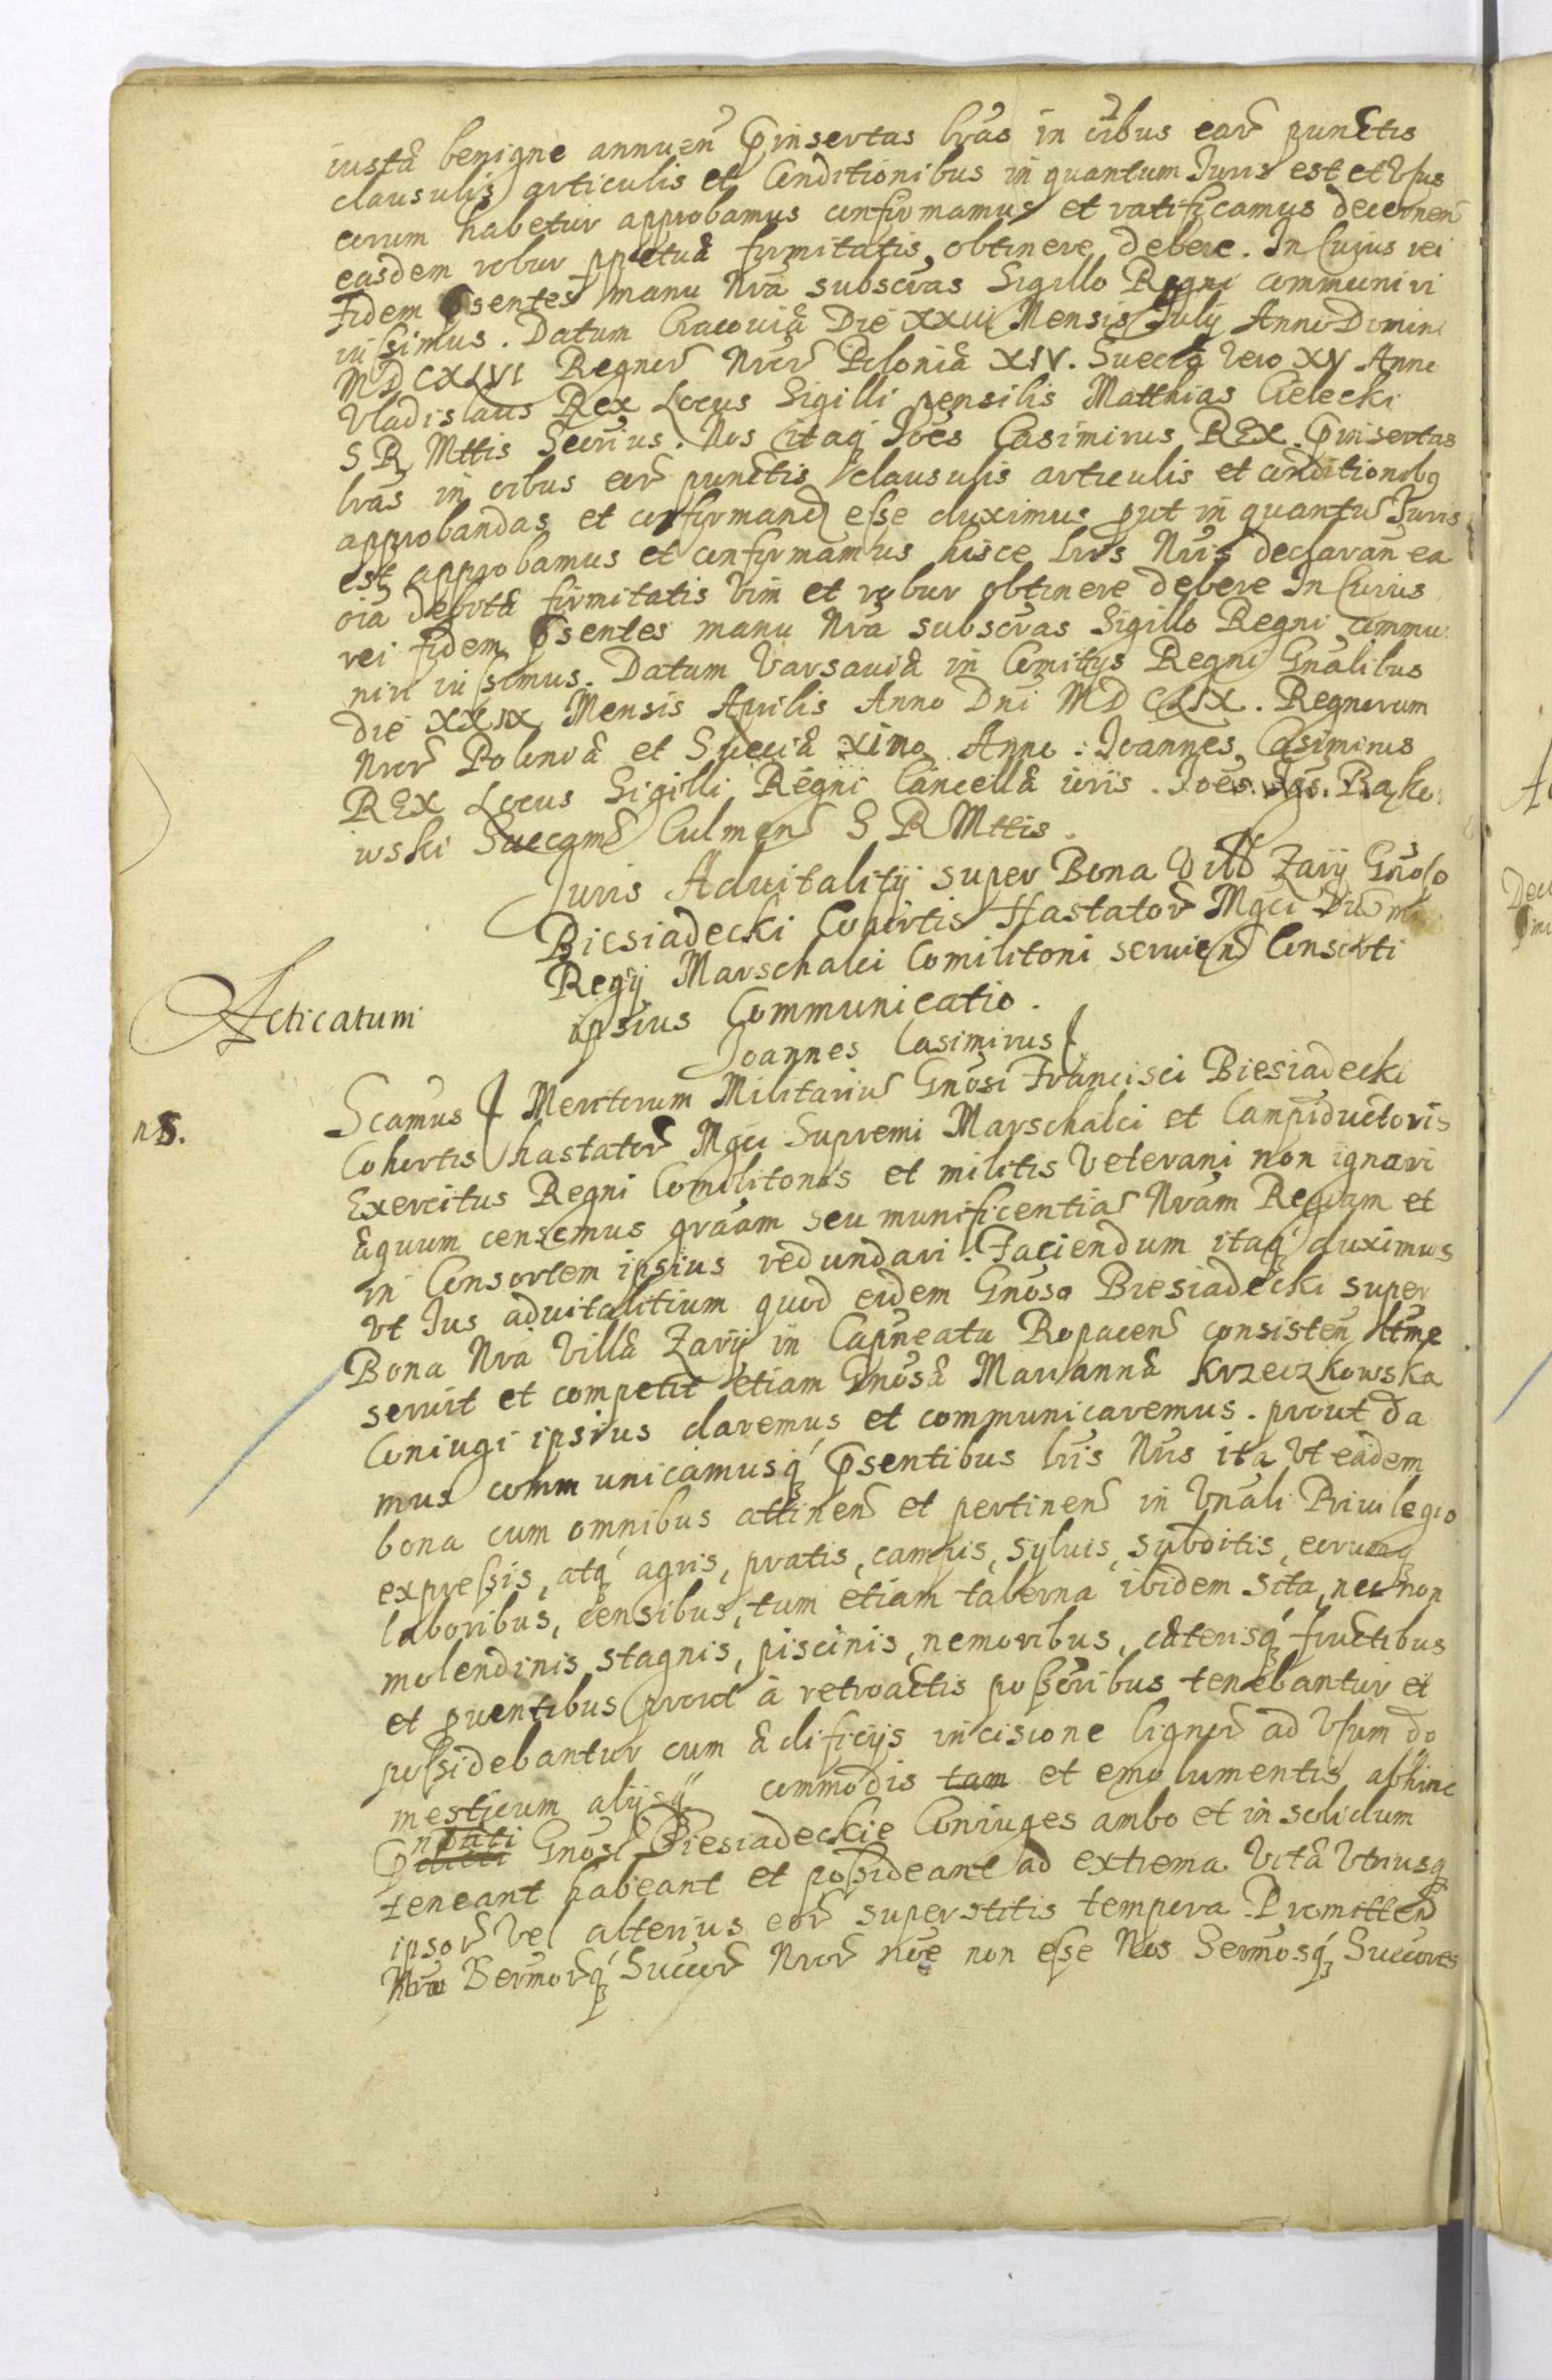 iustæ benigne annuen̄ p̄insertas lr̄as in oībus earū punctis
clausulis articulis et Conditionibus in quantum Iuris est et Usus
eorum habetur approbamus confirmamus et ratificamus decernen̄
easdem robur ppetuæ firmitatis obtinere debere. In Cuius rei
Fidem p̄sentes manu Nr̄a subscr̄as Sigillo Regni communiri
iussimus. Datum Cracoviæ Die XXIII Mensis July Anno Domini
MDCXLVI Regnorū Nrōrū Poloniæ XIV. Sueciæ Vero XV Anno
Vladislaus Rex Locus Sigilli pensilis Matthias Cielecki
S R Mttis Secrīus. Nos itaq Joēs Casimirus REX p̄insertas
lrās in oībus eorū punctis clausulis articulis et conditionibq
approbandas et confirmand esse duximus put in quantū Juris
est approbamus et confirmamus hisce lrīs Nrīs declaran̄ ea
oīa debitæ firmitatis vim et robur obtinere debere In Cuius
rei fidem p̄sentes manu Nr̄a subscr̄as Sigillo Regni commu
niri iussimus. Datum Varsaviæ in Comitys Regni Gnālibus
die XXIX Mensis Aprilis Anno Dn̄i MDCLIX. Regnorum
Nrōrū Poloniæ et Sueciæ XImo Anno. Joannes Casimirus
REX Locus Sigilli Regni Cancellæ ioris. Joēs Igs. Bąko
wski Succamē Culmen̄ S R Mttis.
Juris Advitalitij super Bona Vill Zarij Gnōso
Biesiadecki Cohortis Hastatorū Mgci
Regij Marschalci Comilitoni servien̄ Consorti
ipsius Communicatio.
Acticatum
Joannes Casimirus
nS.
Scamus Meritorum Militariū Gnōsi Francisci Biesiadecki
Cohortis hastatorū Mgci Supremi Marschalci et Campiductoris
Exercitus Regni Comilitonis et militis Veterani non ignari
æquum censemus grāam seu munificentiā Nrām Regiam et
in Consortem ipsius redundari. Faciendum itaq duximus
Vt Ius advitalitium quod eidem Gnōso Biesiadecki super
Bona Nrā Villæ Zarij in Capneatu Ropacen̄ consisten̄ ltme
servit et competit etiam Gnōsæ Mariannæ Krzeczkowska
Coniugi ipsius daremus et communicaremus. prout da
mus communicamusq p̄sentibus lrīs Nrīs ita Vt eadem
bona cum omnibus attinen̄ et pertinen̄ in Vnāli Privilegio
expressis, atq agris, pratis, campis, syluis, subditis, eorumq
laboribus, censibus, tum etiam taberna ibidem sita, nec non
molendinis stagnis, piscinis, nemoribus, cæterisq fructibus
et pventibus prout à retroactis possōribus tenebantur et
possidebantur cum ædificijs incisione lignorū ad Usum do
mesticum alijsq commodis tam et emolumentis abhinc
p̄nōtati Gnōsi Biesiadeckie Coniuges ambo et in solidum
teneant habeant et possideant ad extrema Vitæ Vtriusq
ipsorū Vel alterius eorū superstitis tempora. Promitten̄
Nrō Sermorūq Succorū Nrōrū nōe non esse Nos Sermosq Succores